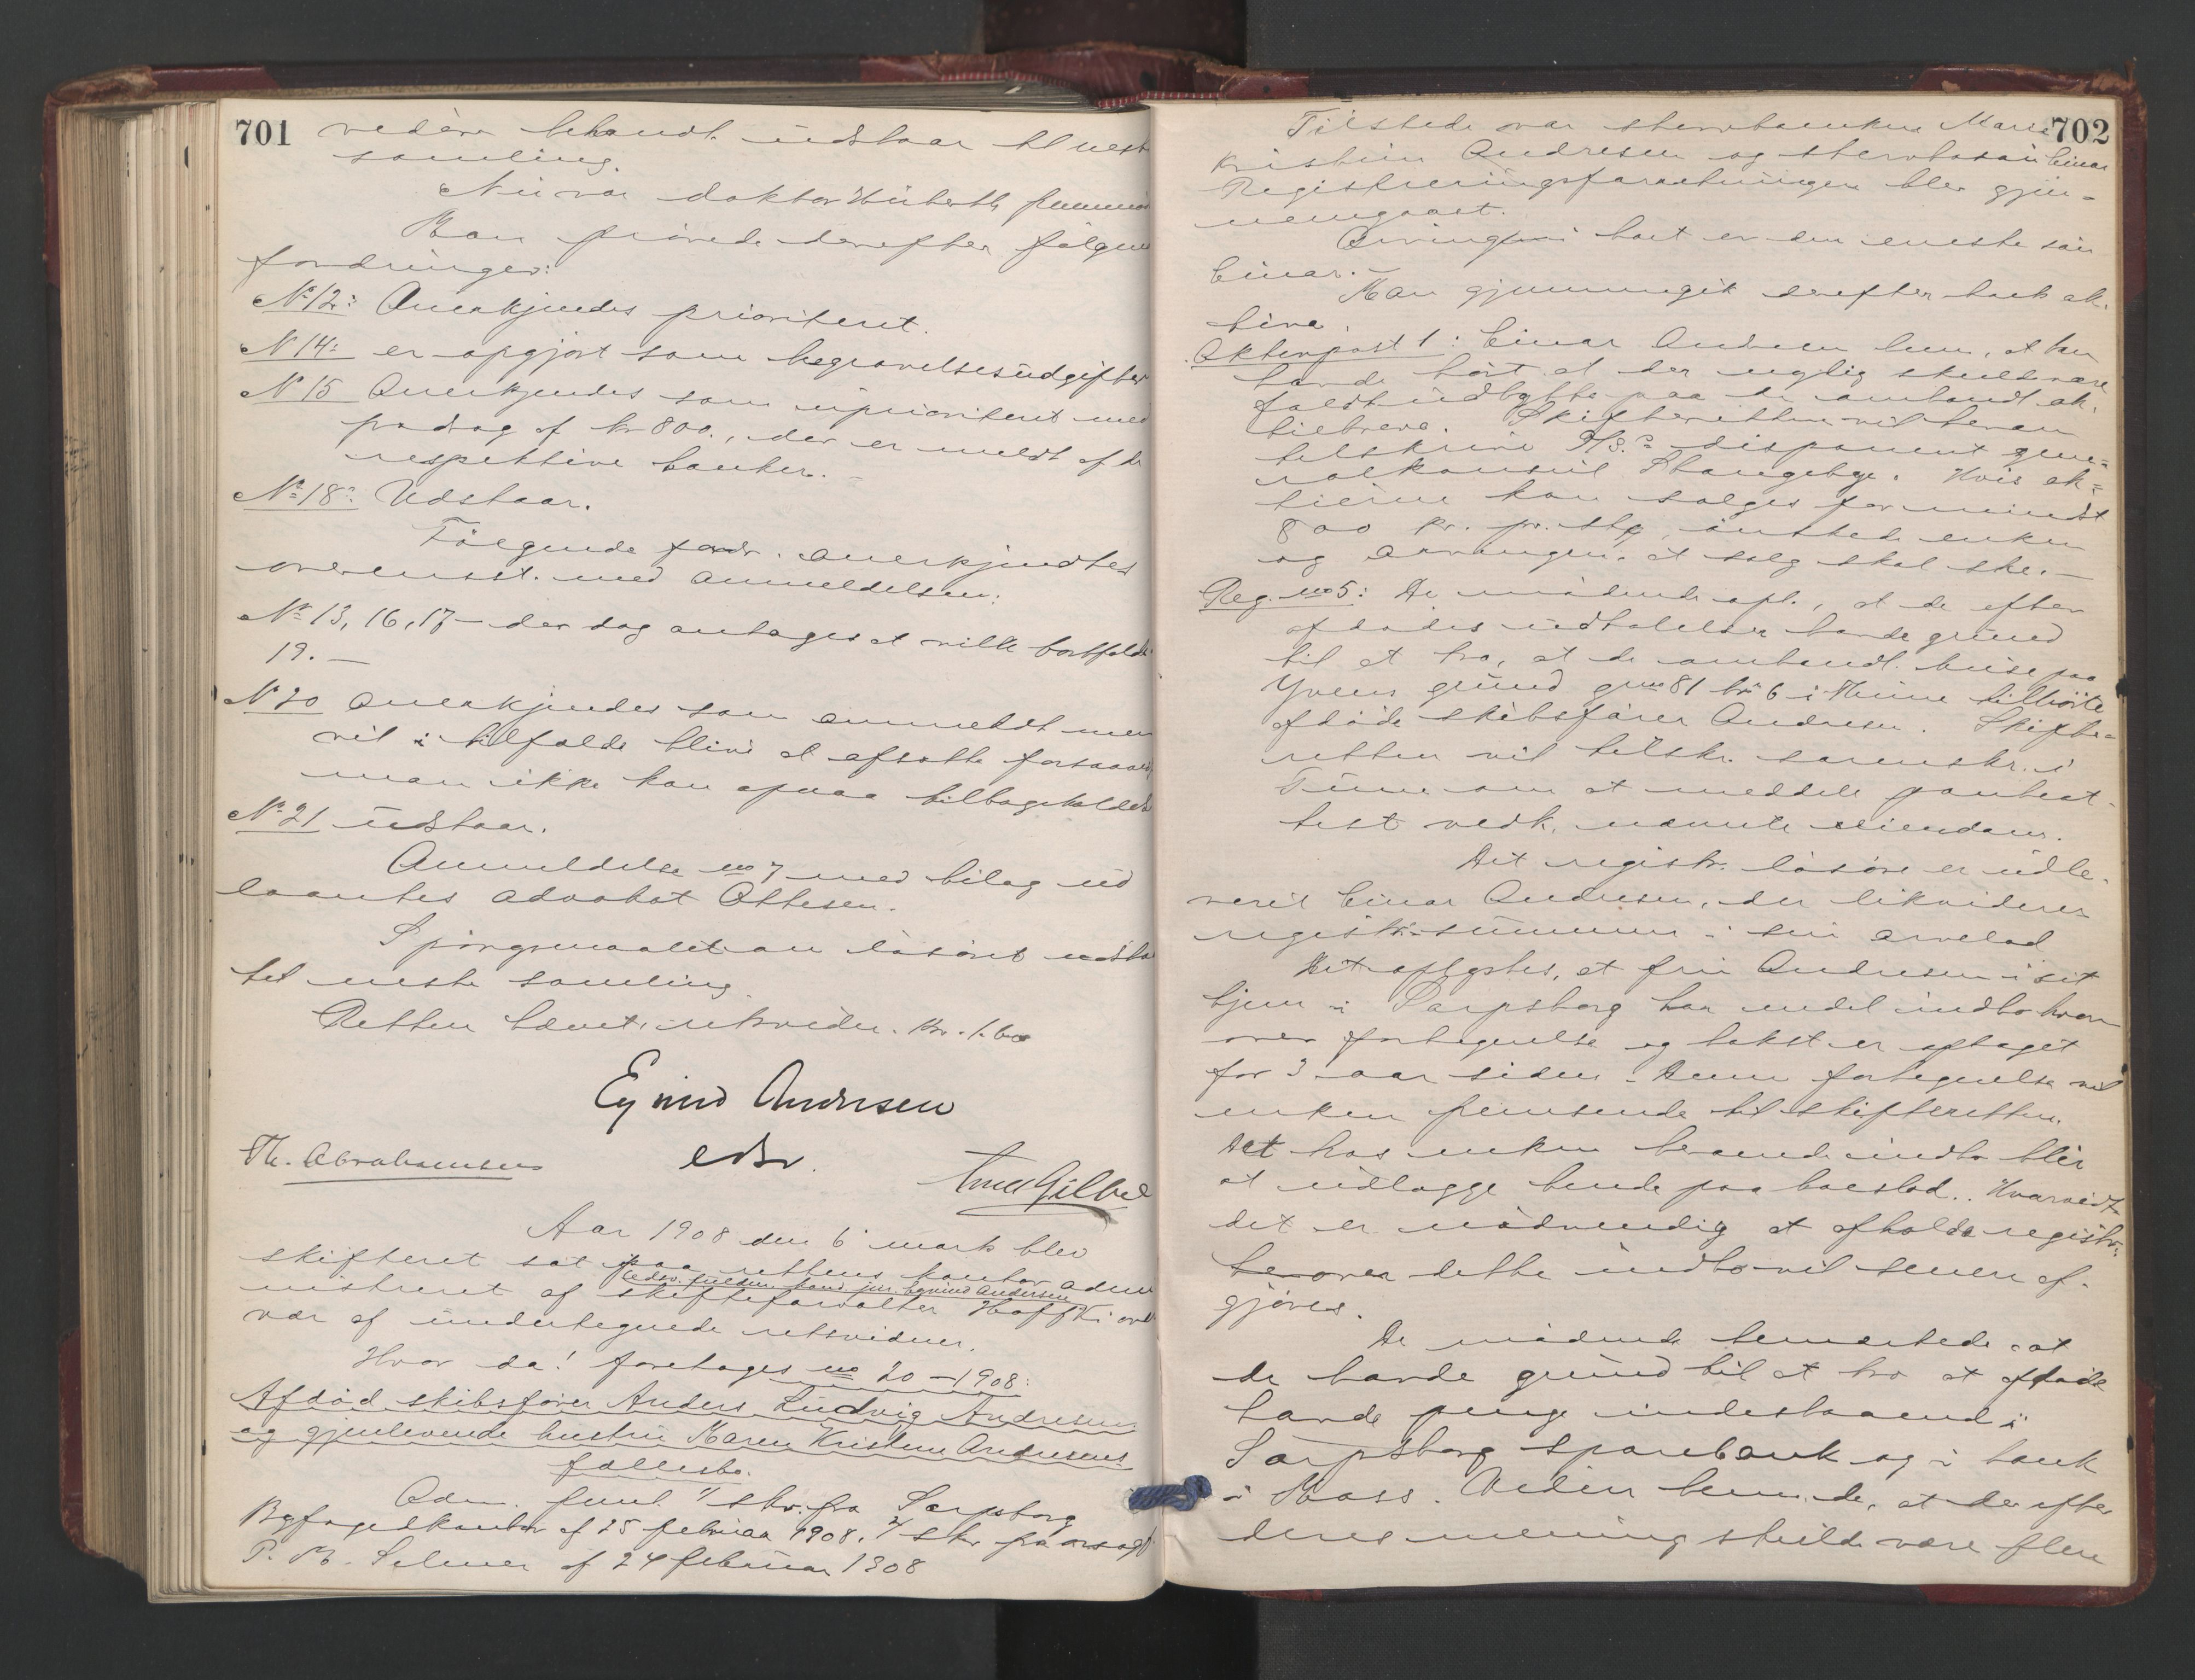 701
videre behandl. udstaar til nest
samling.
Nu var doktor fremmødt
Man prøvede derefter følgen
fordringer:
No 12: Anerkjendes prioriteret.
N 14: er opgjort som begravelsesudgifter
N 15 Anerkjendes som uprioritert med
fradrag af kr 800., der er meldt af de
respektive banker. -
No 18: Udstaar.
Følgende fordr. anerkjendtes
overensst. med anmeldelsen:
No 13, 16, 17 - der dog antages at ville bortfalde
19. -
N 20 anerkjendes som anmeldt men
vil i tilfælde blive at afsætte forsaavidt
man ikke kan opnaa tilbageholdelse
No 21 udstaar.
Anmeldelse no 7 med bilag ud
laantes advokat Ottesen.
Spørgsmaalet om løsøret udstaar
til neste samling
Retten hævet. retsvidn. kr. 1.60
Eyvind Andresen
edsv.
Th. Abrahamsen
Aar 1908 den 6 marts blev
skifteret sat paa rettens kontor adm
nistreret af skifteforvalter ved
edsv. fuldm. cand. jur. Eyvind Andersen
vær af undertegnede retsvidner.
Hvor da! foretoges no 20 - 1908:
Afdød skibsfører Anders Ludvig Andresens
og gjenlevende hustru Maren Kristine Andresens
fællesbo.
Adm. freml. 1/ skr. fra Sarpsborg
Byfogedkontor af 25 februar 1908. 2/ skr. fra
P. M. Selmer af 24 februar 1908
702
Tilstede var sterboenken Maren
Kristine Andresen og sterbosøn Einar
Registreringsforretningen blev gjen-
nemgaaet.
Arving i boet er den eneste søn
Einar. -
Man gjennemgik derefter boets ak-
tiva.
Aktivpost 1: Einar Andresen bem., at han
havde hørt at der nylig skulde være
faldt udbytte paa de omhandl. ak-
tiebreve. Skifteretten vil herom
tilskrive A/S.s disponent gene-
ralkonsul Stangebye. Hvis ak-
tierne kan sælges for mindst
800 kr. pr. stk, ønskede enken
og arvingen at salg skal ske. -
Reg. no 5: De mødende opl., at de efter
afdødes udtalelser havde grund
til at tro, at de omhandl. huse paa
Yvens grund gno 81 bno 6 i Thune tilhørte
afdøde skibsfører Andresen. Skifte-
retten vil tilskr. sorenskr. i
Tune om at meddele panteat-
test vedk. nævnte eiendom.
Det registr. løsøre er udle-
veret Einar Andresen, der likviderer
registr.summen i sin arvelod
Det oplystes, at fru Andresen i sit
hjem i Sarpsborg har endel indbo hvor-
over fortegnelse og takst er optaget
for 3 aar siden. Denne fortegnelse vil
enken fremsende til skifteretten.
Det hos enken beroende indbo blir
at udlægge hende paa boeslod.. Hvorvidt
det er nødvendig at afholde registr.
over dette indbo vil senere af-
gjøres.
De mødende bemærkede at
de havde grund til at tro at afdøde
havde penge indestaaende i
Sarpsborg Sparebank og i bank
i Moss. Videre bem. de, at der efter
deres mening skulde være flere